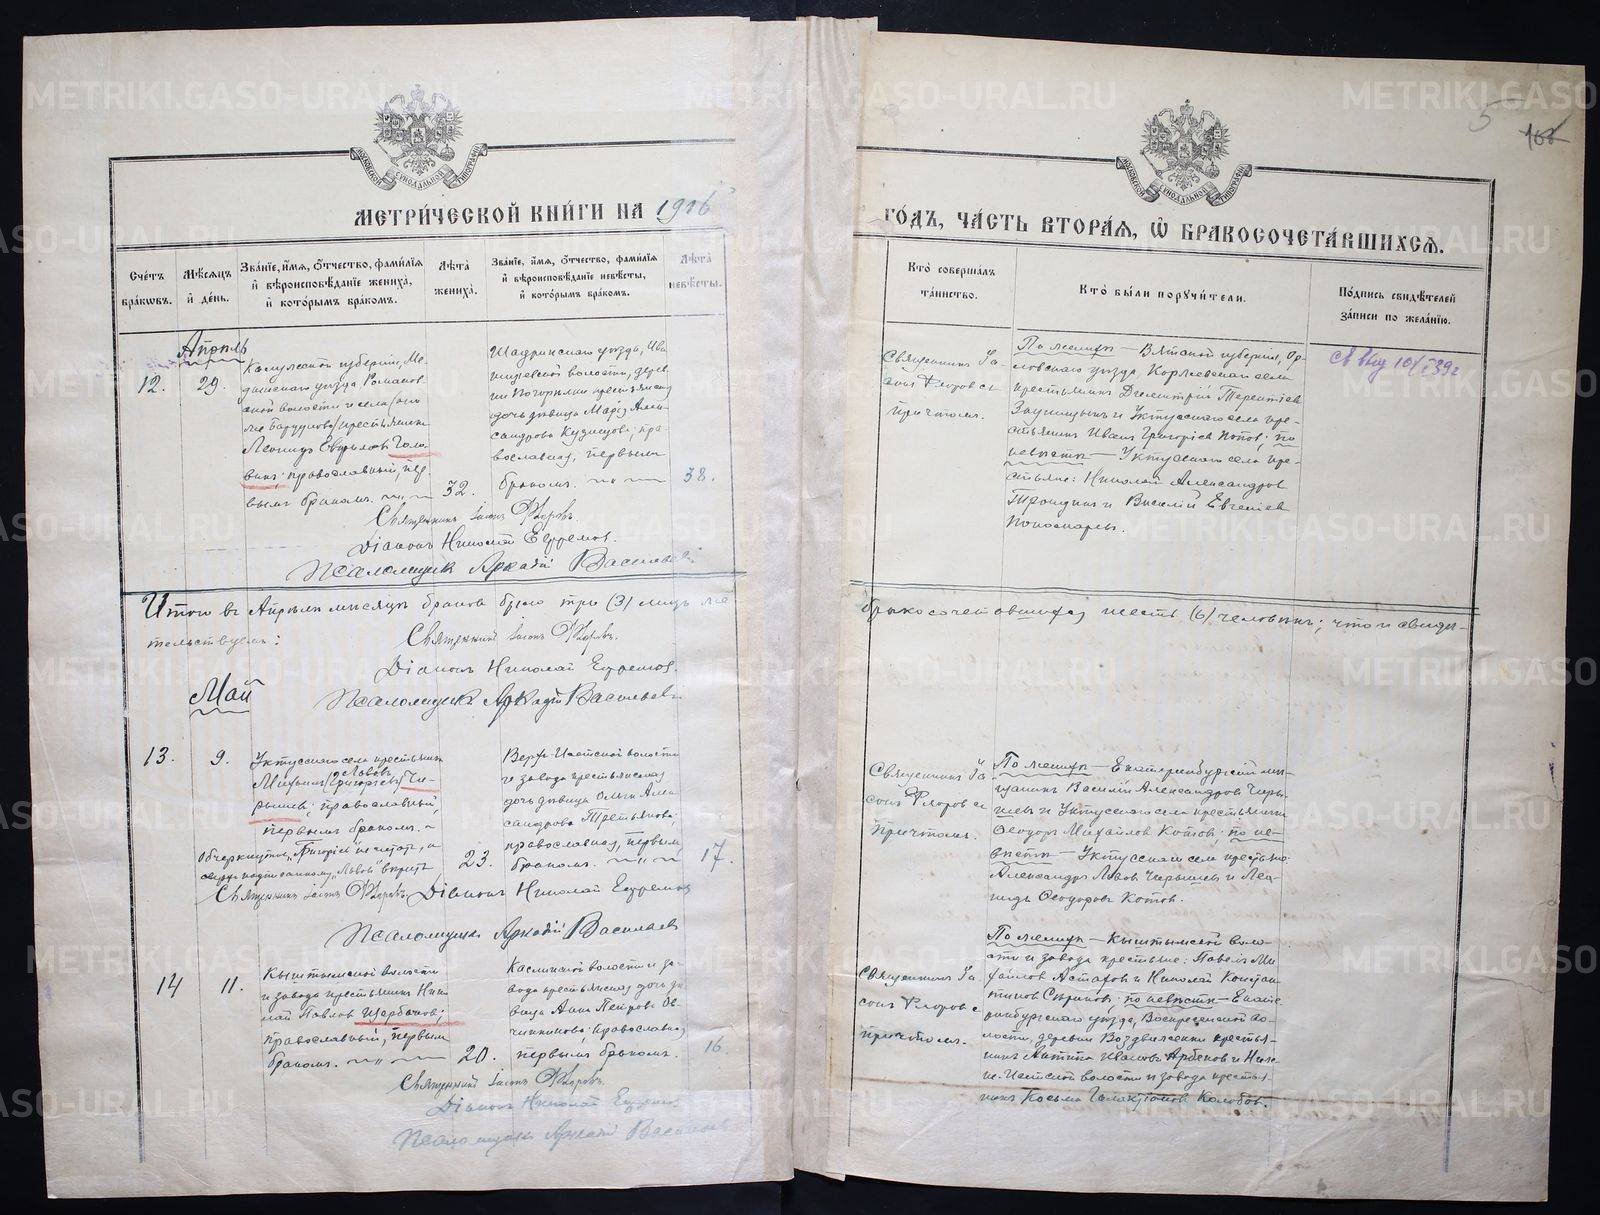 METRIKI.GASO-URAL.RU
5
МЕТРИ́ЧЕСКОЙ КНИ́ГИ НА 1916
ГО́ДЪ, ЧА́СТЬ ВТОРА́Ѧ, Ѽ БРАКОСОЧЕТА́ВШИХСѦ.
Сче́тъ бра́кωвъ.
Мѣ́сѧцъ и́ де́нь.
Зва́нїе, и́мѧ, о́тчество, фами́лїѧ и́ вѣроисповѣ́данїе жениха̀, и́ кото́рымъ бра́комъ.
Лѣ́та жениха̀.
Зва́нїе, и́мѧ, о́тчество, фами́лїѧ и́ вѣроисповѣ́данїе невѣ́сты, и́ кото́рымъ бра́комъ.
Лѣ́та невѣ́сты.
Кто̀ соверша́лъ та́инство.
Кто̀ бы́ли порꙋчи́тели.
По́дпись свидѣ́телей за́писи по жела́нїю.
Апрѣль
12.
29.
Калужской губерніи, Ме-
дынского уѣзда Романов-
ской волости и села
крестьянинъ
Леонидъ Голо-
винъ; православный, пер-
вымъ бракомъ.
32.
Шадринского уѣзда,
волости, дерев-
ни крестьянская
дочь дѣвица Марія Алек-
сандрова Кузнецова; пра-
вославная, первымъ
бракомъ.
38.
Священникъ Іа-
сонъ Флоровъ съ
причтомъ.
По женихѣ – Вятской губерніи, Ор-
ловскаго уѣзда села
крестьянинъ Димитрій Терентіев
и Уктусскаго села кре-
стьянинъ Иванъ Григоріев Попов; по
невѣстѣ – Уктусскаго села кре-
стьяне: Николай Александров
и Василій Евгеніев
Пономаревъ.
Св выд 10/I 39г
Священникъ Іасонъ Флоровъ.
Діаконъ Николай Ефремов.
Псаломщик Аркадій Васильевъ
Итого въ Апрѣлѣ мѣсяцѣ браков было три (3)
бракосочетавшихся шесть (6) человѣкъ; что и свидѣ-
тельствуемъ:
Священникъ Іасонъ Флоровъ.
Діаконъ Николай Ефремов
Псаломщикъ Аркадій Васильевъ
Май
13.
9.
Уктусскаго села крестьянинъ
Львовъ
Михаилъ (Григорьев) Чи-
рышев; православный,
первымъ бракомъ.
Обчеркнутое „Григорьев" не считать, а
сверху надписанному „Львовъ" вѣрить
23.
Верх-Исетской волости
и завода крестьянская
дочь дѣвица Ольга Алек-
сандрова Третьякова;
православная, первымъ
бракомъ.
17.
Священникъ Іа-
сонъ Флоровъ съ
причтомъ.
По женихѣ – Екатеринбургскій мѣ-
щанинъ Василій Александров Чиры-
шевъ и Уктусскаго села крестьянинъ
Ѳеодоръ Михайлов Котов; по не-
вѣстѣ – Уктусскаго села крестьяне:
Александръ Львов Чирышев и Лео-
нидъ Ѳеодоровъ Котов.
Священникъ Іасонъ Флоровъ Діаконъ Николай Ефремов
Псаломщикъ Аркадій Васильев
14
11.
Кыштымской волости
и завода крестьянинъ Нико-
лай Павлов Щербаков;
православный, первымъ
бракомъ.
20.
Каслинской волости и за-
вода крестьянская дочь дѣ-
вица Анна Петрова Ов-
чинникова; православная
первымъ бракомъ.
16.
Священникъ Іа-
сонъ Флоровъ съ
причтомъ.
По женихѣ – Кыштымской воло-
сти и завода крестьяне: Павелъ Ми-
хайлов Астахов и Николай Констан-
тинов; по невѣстѣ – Екате-
ринбургскаго уѣзда, Воскресенской во-
лости, деревни Воздвиженки крестья-
нинъ Иванов и Ниж-
не-Исетской волости и завода крестья-
нинъ Косьма Галактіонов Колобов.
Священникъ Іасонъ Флоровъ.
Діаконъ Николай Ефремов
Псаломщикъ Аркадій Васильев